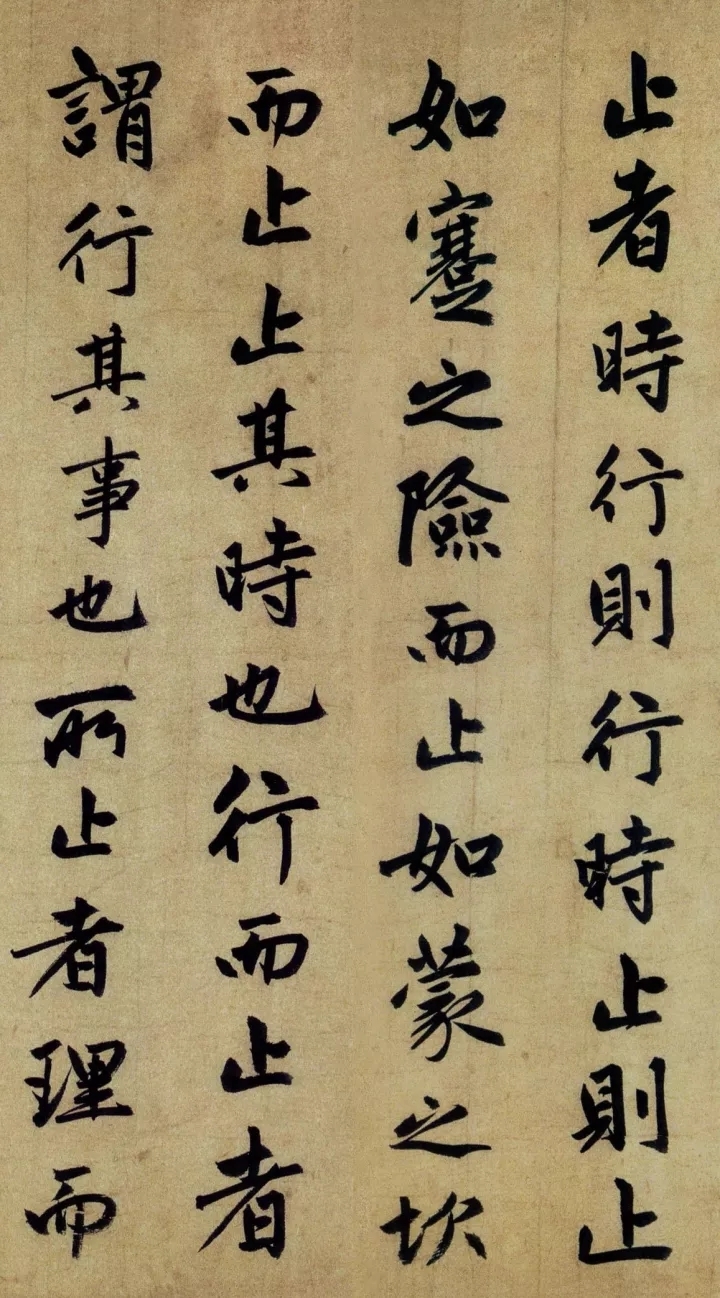 止者時行則行時止則止
如蹇之險而止如蒙之坎
而止止其時也行而止者
謂行其事也所止者理而